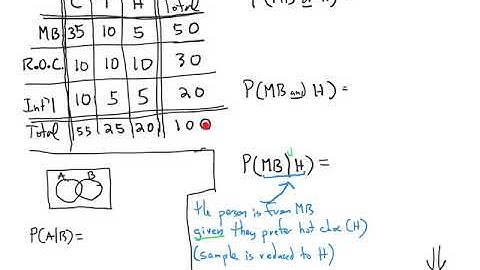 C T H Total
MB 35 10 5 50
R.O.C. 10 10 10 30
Int'l 10 5 5 20
Total 55 25 20 100
P(MB or H) =
P(MB and H) =
P(MB|H) =
the person is from MB
given they prefer hot choc (H)
(sample is reduced to H)
A B
P(A|B) =